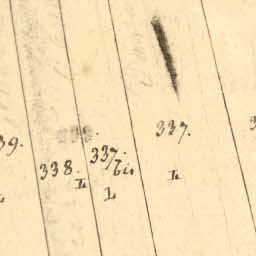 337.
39.
338.
L
337.
bis
L
L